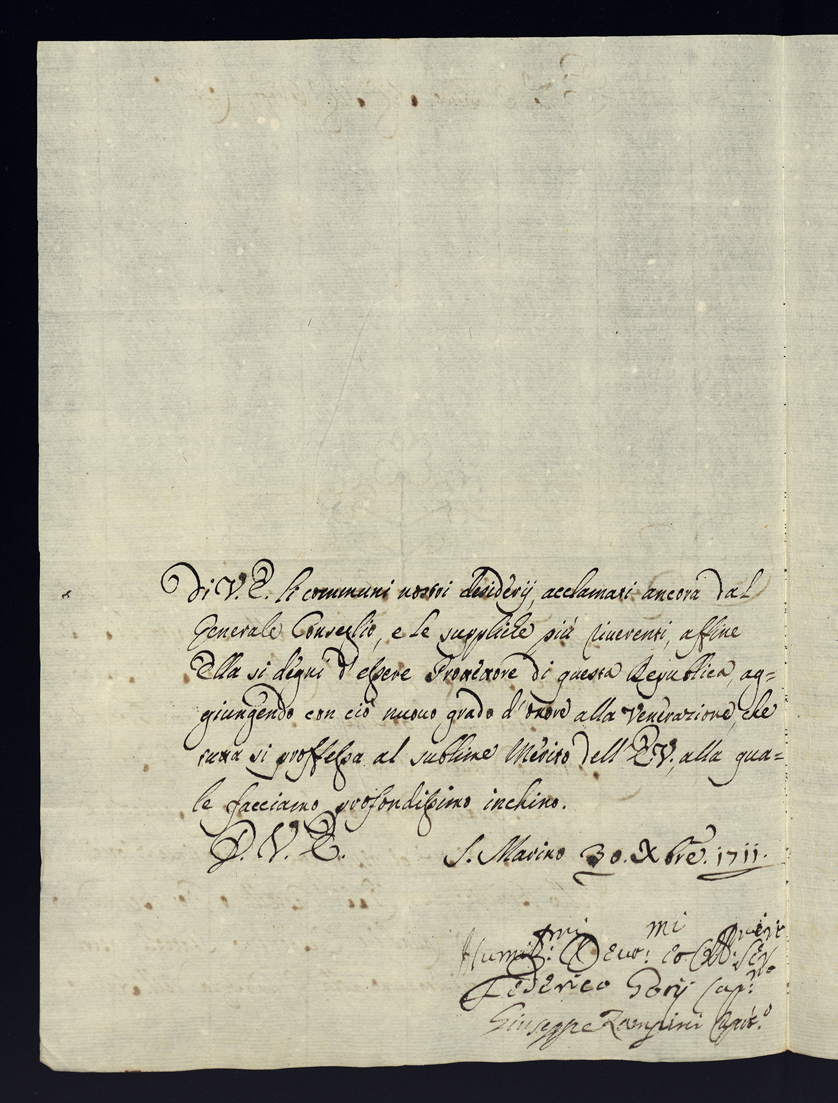 Di V. E. li communi nostri desiderij, acclamati ancora dal
Generale Conseglio, e le suppliche più riverenti, affine
Ella si degni d'essere Protettore di questa Republica, ag=
giungendo con ciò nuovo grado d'onore alla Venerazione, che
tutta si proffessa al sublime Merito dell'E.V., alla qua=
le facciamo profondissimo inchino.
D. V. E. S. Marino 30. Xbre. 1711.
Humil.mi Devot.mi et Obb. Ser.
Federico Gorij Cap.no
Giuseppe Zampini Capit.o